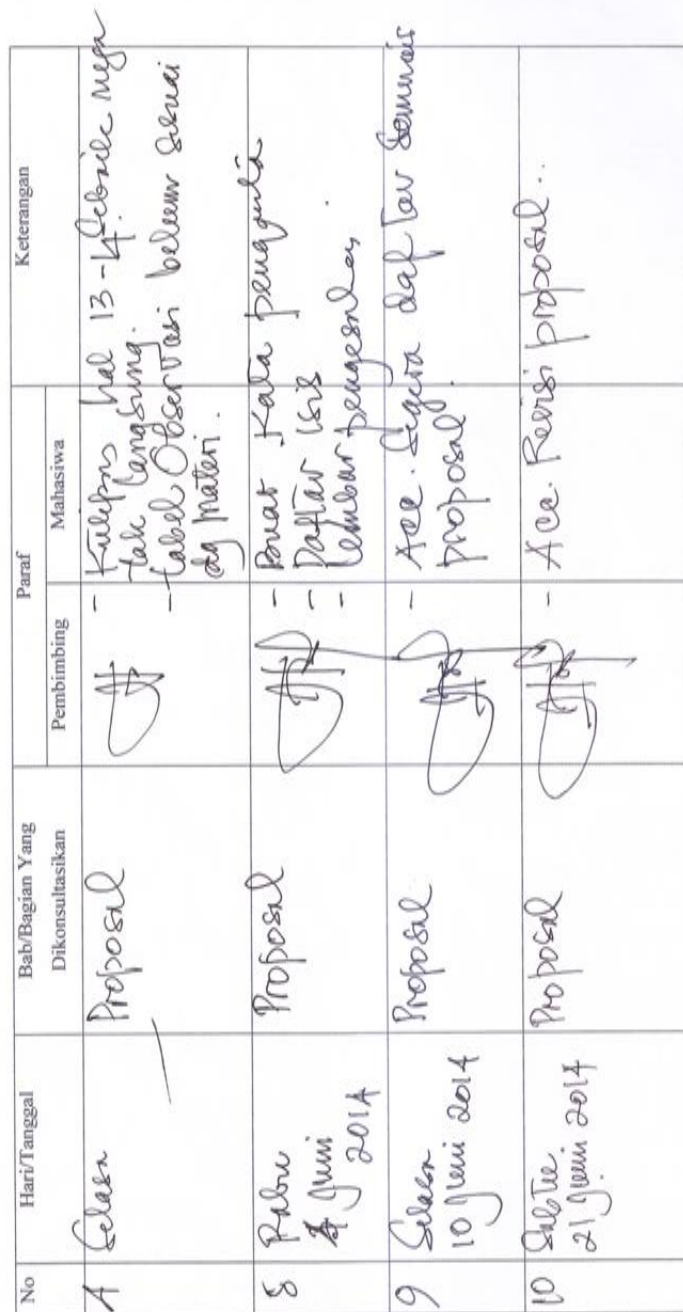 No
Hari/Tanggal
Bab/Bagian Yang
Dikonsultasikan
Paraf
Pembimbing
Mahasiswa
Keterangan
Selasa
Proposal
- hal 13-14. Sebaiknya
tak langsung.
- tabel Observasi belum sesuai
dg materi.
8
Rabu
4 Juni
2014
Proposal
- Buat Kata pengantar
- Daftar isi
- lembar pengesahan
9
Selasa
10 Juni 2014
Proposal
- Acc. Segera daftar Seminar
proposal.
10
Sabtu
21 Juni 2014
Proposal
- Acc. Revisi proposal..